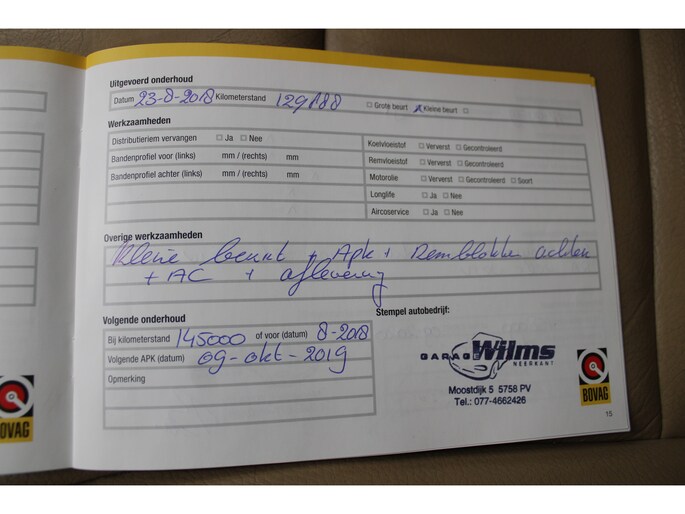 Uitgevoerd onderhoud
Datum 23-8-2018 Kilometerstand 129188 Grote beurt Kleine beurt
Werkzaamheden
Distributieriem vervangen Ja Nee
Bandenprofiel voor (links) mm / (rechts) mm
Bandenprofiel achter (links) mm / (rechts) mm
Koelvloeistof Ververst Gecontroleerd
Remvloeistof Ververst Gecontroleerd
Motorolie Ververst Gecontroleerd Soort
Longlife Ja Nee
Aircoservice Ja Nee
Overige werkzaamheden
Kleine beurt + Apk + Remblokken achter
+ AC + aflevering
Volgende onderhoud
Bij kilometerstand 145000 of voor (datum) 8-2018
Volgende APK (datum) 09-okt-2019
Opmerking
Stempel autobedrijf:
GARAGE Wilms
NEERKANT
Moostdijk 5 5758 PV
Tel.: 077-4662426
BOVAG
15
BOVAG